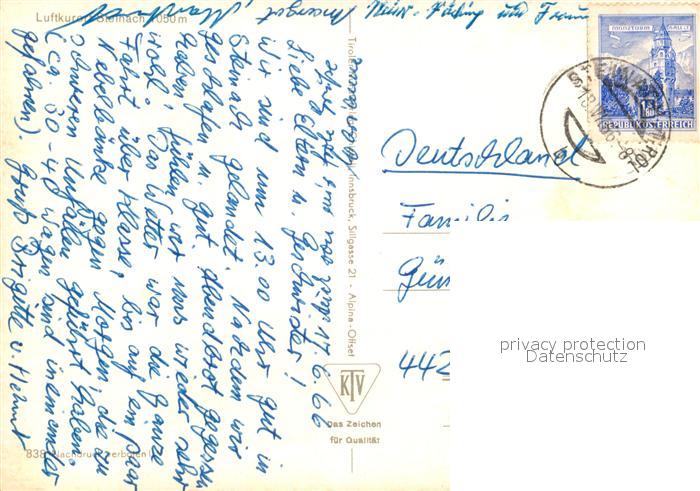 Luftkurort Steinach 1050 m
17.6.66
Liebe Eltern u. Geschwister!
Wir sind um 13.00 Uhr gut in
Steinach gelandet. Nachdem wir
geschlafen u. gut Abendbrot gegessen
haben, fühlen wir uns wieder sehr
wohl. Das Wetter war die ganze
Fahrt über klasse, bis auf ein paar
Nebelbänke gegen Morgen, die zu
schweren Unfällen geführt haben.
(ca. 30-40 Wagen sind ineinander
gefahren). Gruß Brigitte u. Helmut
838 Nachdruck verboten
Innsbruck, Sillgasse 21 - Alpina-Offset
KTV
Das Zeichen
für Qualität
und Frau
MÜNZTURM HALL I.T.
1.80
REPUBLIK ÖSTERREICH
STEINACH TIROL
Deutschland
Familie
442
privacy protection
Datenschutz